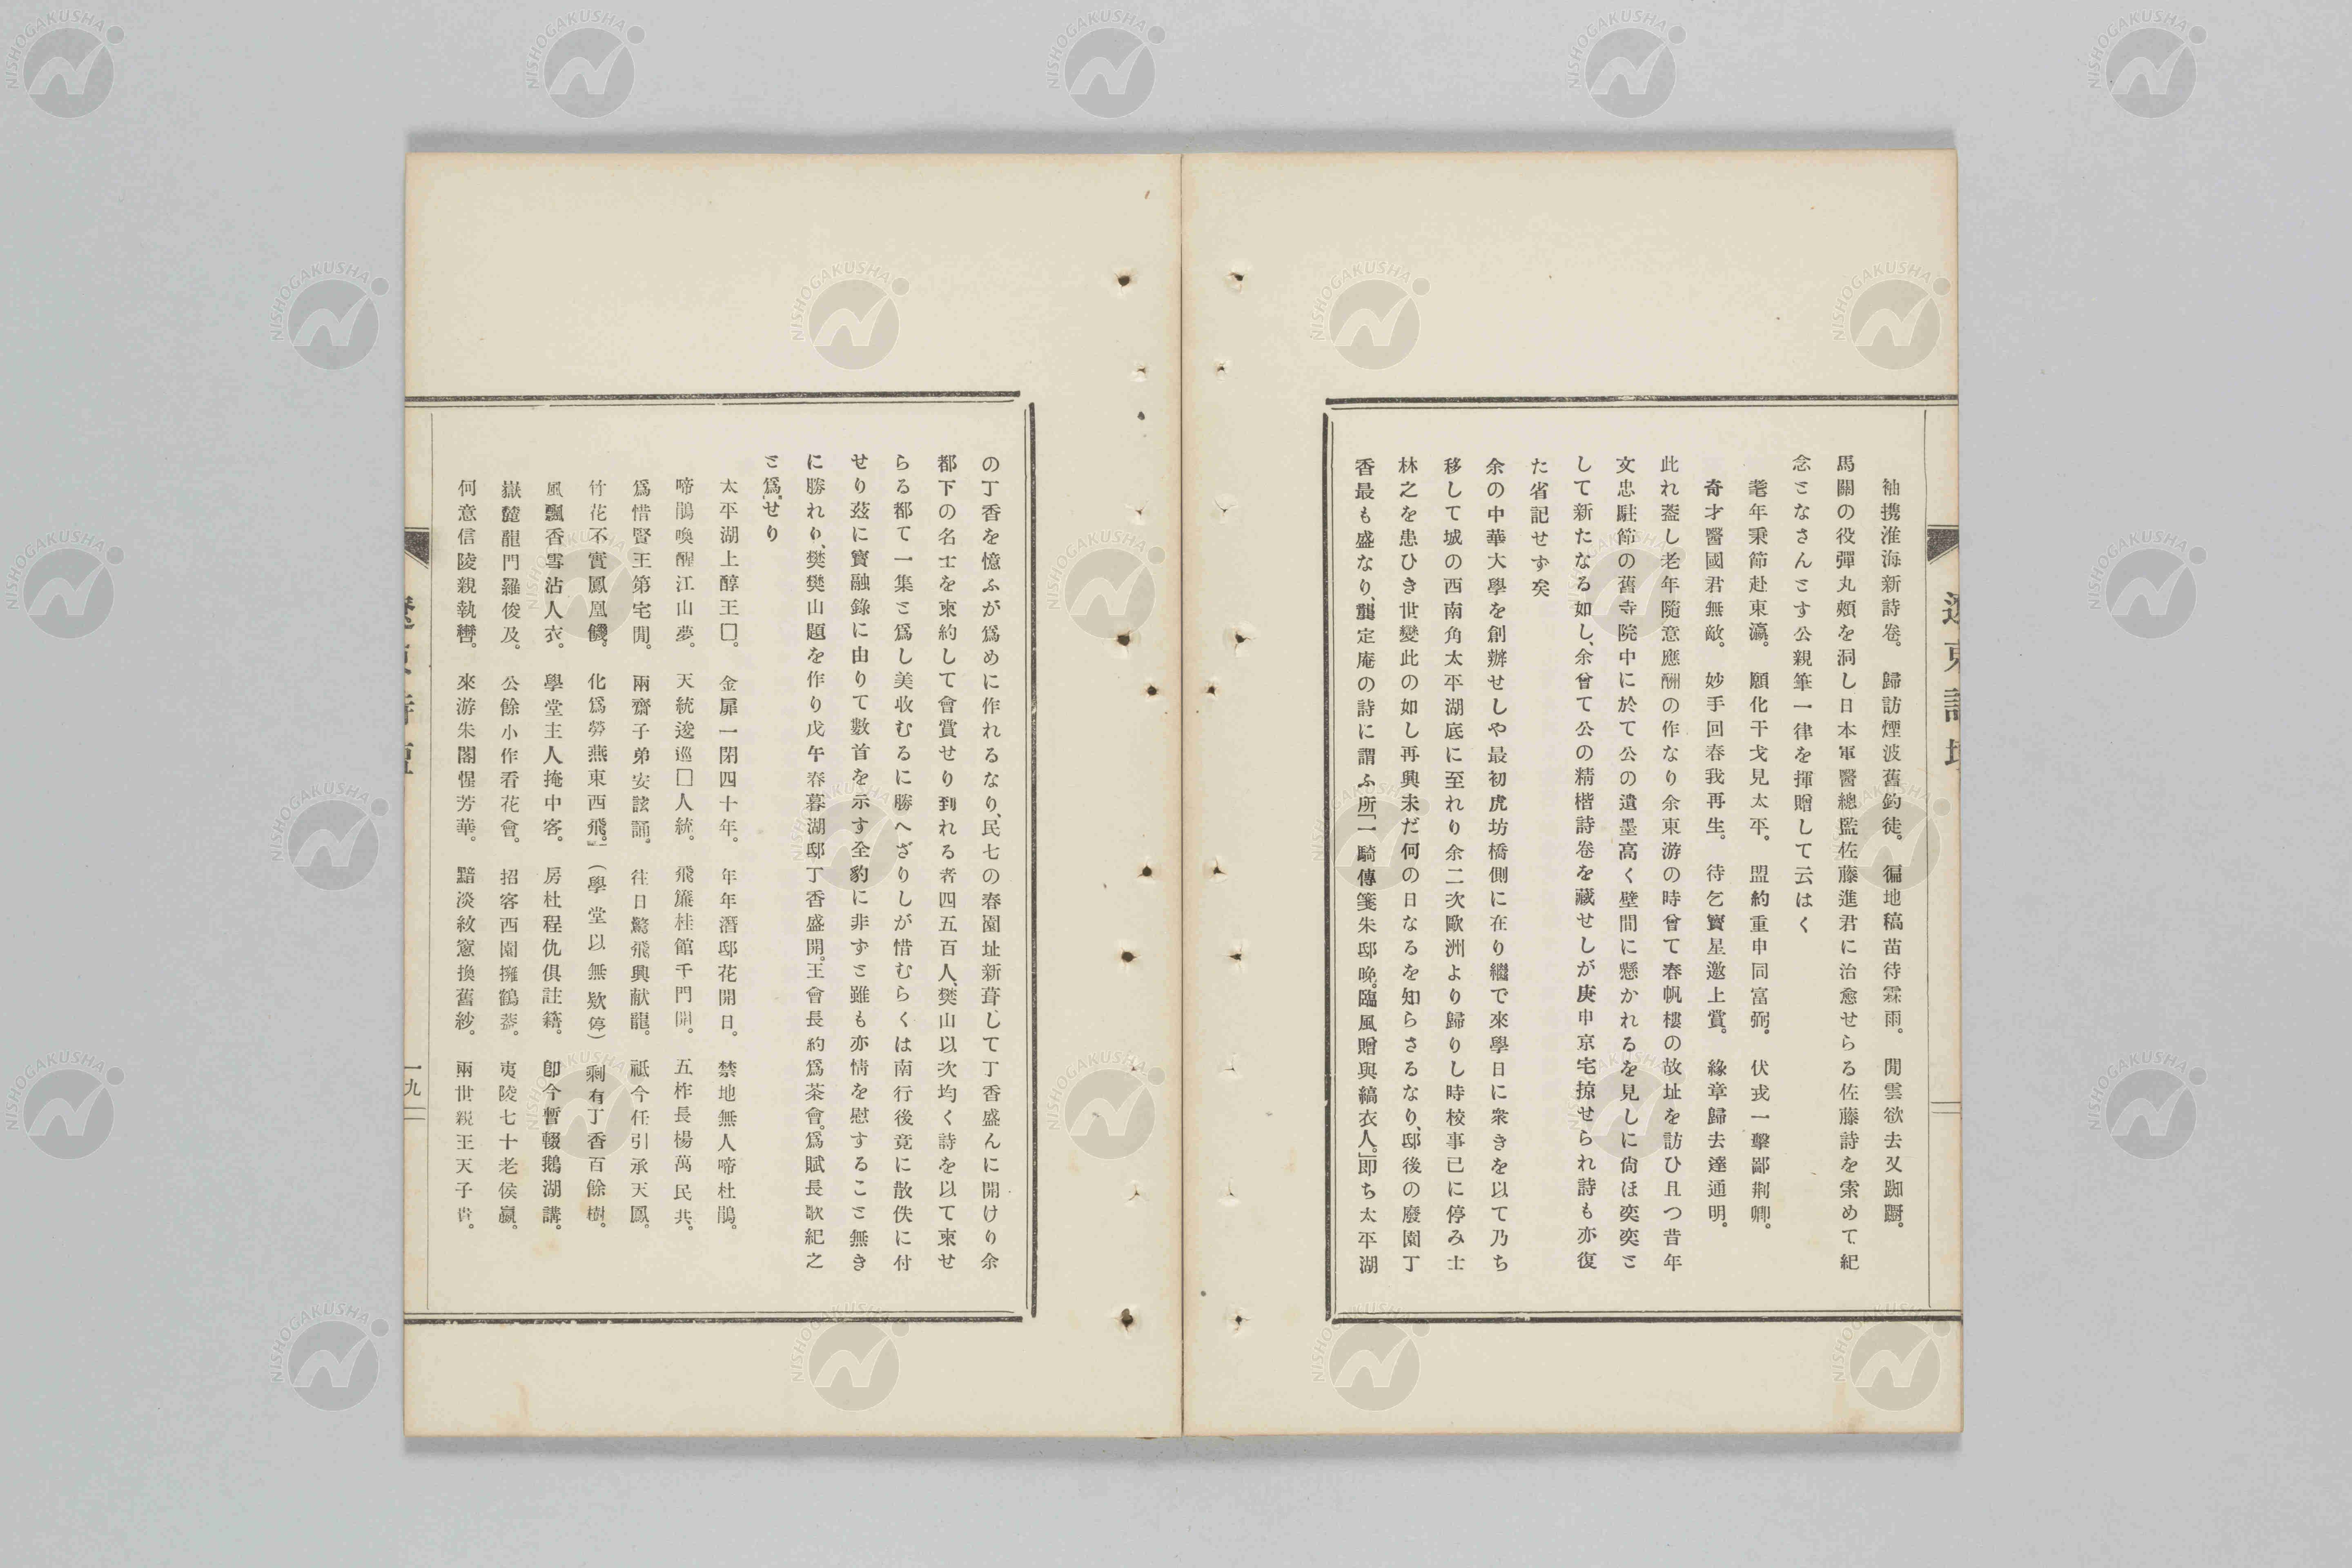 袖携淮海新詩卷。　歸訪煙波舊釣徒。　徧地稿苗待霖雨。　閒雲欲去又踟躕。
馬關の役彈丸頰を洞し日本軍醫總監佐藤進君に治愈せらる佐藤詩を索めて紀
念となさんとす公親筆一律を揮贈して云はく
耄年秉節赴東瀛。　願化干戈見太平。　盟約重申同富弼。　伏戎一擊鄙荆卿。
奇才醫國君無敵。　妙手回春我再生。　待乞寶星邀上賞。　緣章歸去達通明。
此れ蓋し老年隨意應酬の作なり余東游の時曾て春帆樓の故址を訪ひ且つ昔年
文忠駐節の舊寺院中に於て公の遺墨高く壁間に懸かれるを見しに尙ほ奕奕と
して新たなる如し、余曾て公の精楷詩卷を藏せしが庚申京宅掠せられ詩も亦復
た省記せず矣
余の中華大學を創辦せしや最初虎坊橋側に在り繼で來學日に衆きを以て乃ち
移して城の西南角太平湖底に至れり余二次歐洲より歸りし時校事已に停み士
林之を患ひき世變此の如し再興未だ何の日なるを知らさるなり、邸後の廢園丁
香最も盛なり、龔定庵の詩に謂ふ所「一騎傳箋朱邸晚。臨風贈與縞衣人。」卽ち太平湖
の丁香を憶ふが爲めに作れるなり、民七の春園址新葺、して丁香盛んに開けり余
都下の名士を柬約して會賞せり到れる者四五百人、樊山以次均く詩を以て柬せ
らる都て一集と爲し美收むるに勝へざりしが惜むらくは南行後竟に散佚に付
せり茲に實融錄に由りて數首を示す全豹に非ずと雖も亦情を慰することと無き
に勝れり、樊樊山題を作り戊午春暮湖邸丁香盛開。王會長約爲茶會。爲賦長歌紀之
と爲」せり
太平湖上醇王□。　金扉一閉四十年。　年年潛邸花開日。　禁地無人啼杜鵑。
啼鵑喚醒江山夢。　天統逡巡□人統。　飛簾桂館千門開。　五柞長楊萬民共。
爲惜賢王第宅閒。　兩齋子弟安詠誦。　往日驚飛興献龍。　祗今任引承天鳳。
竹花不實鳳凰饑。　化爲勞燕東西飛。」　(學堂以無欵停)　剩有丁香百餘樹。
風飄香雪沾人衣。　學堂主人掩中客。　房杜程仇俱註籍。　卽今暫輟鵝湖講。
嶽麓龍門羅俊及。　公餘小作看花會。　招客西園擁鶴蓋。　夷陵七十老侯嬴。
何意信陵親執轡。　來游朱閣惺芳華。　黯淡紋窻換舊紗。　兩世親王天子貴。
一九